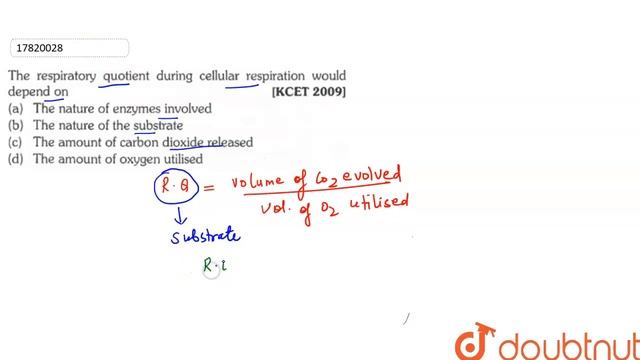 17820028
The respiratory quotient during cellular respiration would
depend on [KCET 2009]
(a) The nature of enzymes involved
(b) The nature of the substrate
(c) The amount of carbon dioxide released
(d) The amount of oxygen utilised
R.Q = volume of CO2 evolved
Vol. of O2 utilised
Substrate
R.
doubtnut